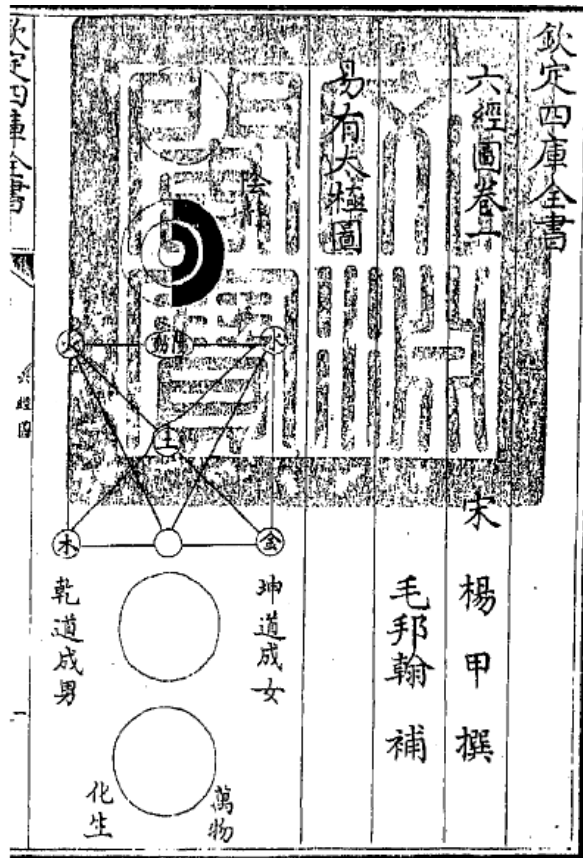 欽定四庫全書
六經圖卷一
宋 楊甲 撰
毛邦翰 補
易有太極圖
陰靜
陽動
火
水
土
木
金
坤道成女
乾道成男
萬物
化生
欽定四庫全書
六經圖
一